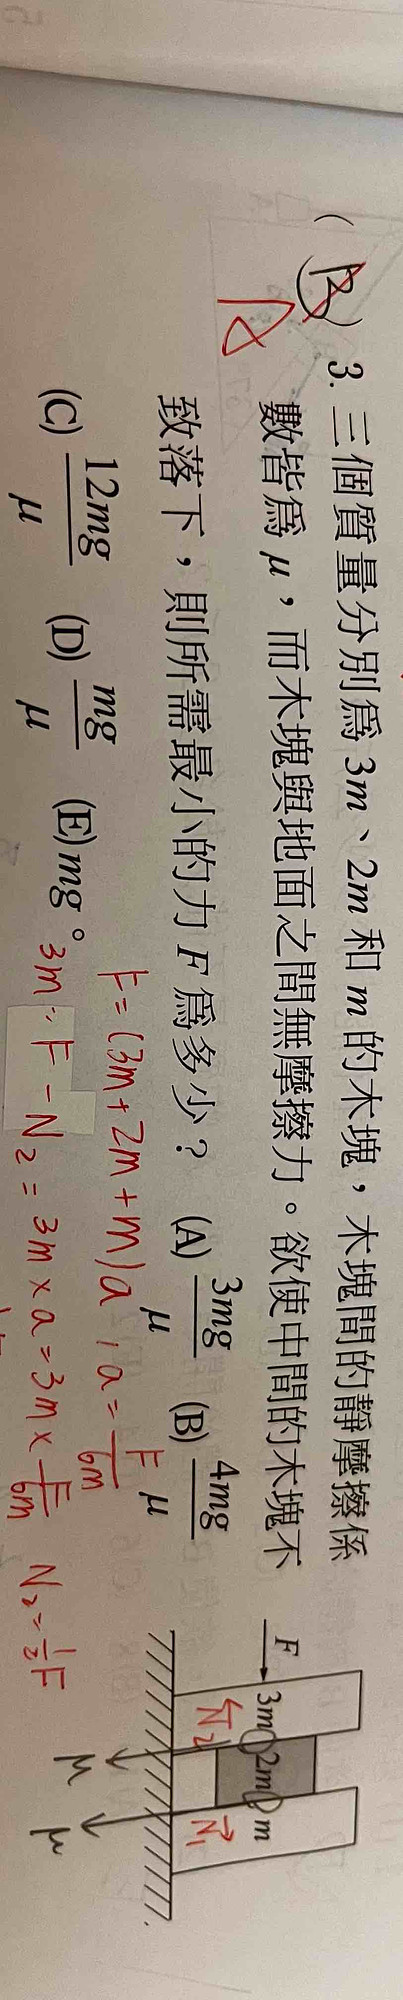 (B) A 3. 三個質量分別為 3m、2m 和 m 的木塊，木塊間的靜摩擦係
數皆為 μ，而木塊與地面之間無摩擦力。欲使中間的木塊不
致落下，則所需最小的力 F 為多少？ (A) 3mg/μ (B) 4mg/μ
(C) 12mg/μ (D) mg/μ (E) mg。
F = (3m+2m+m)a , a = F/6m
3m: F - N₂ = 3m × a = 3m × F/6m N₂ = ½F
F
3m 2m m
N₂ N₁
μ μ